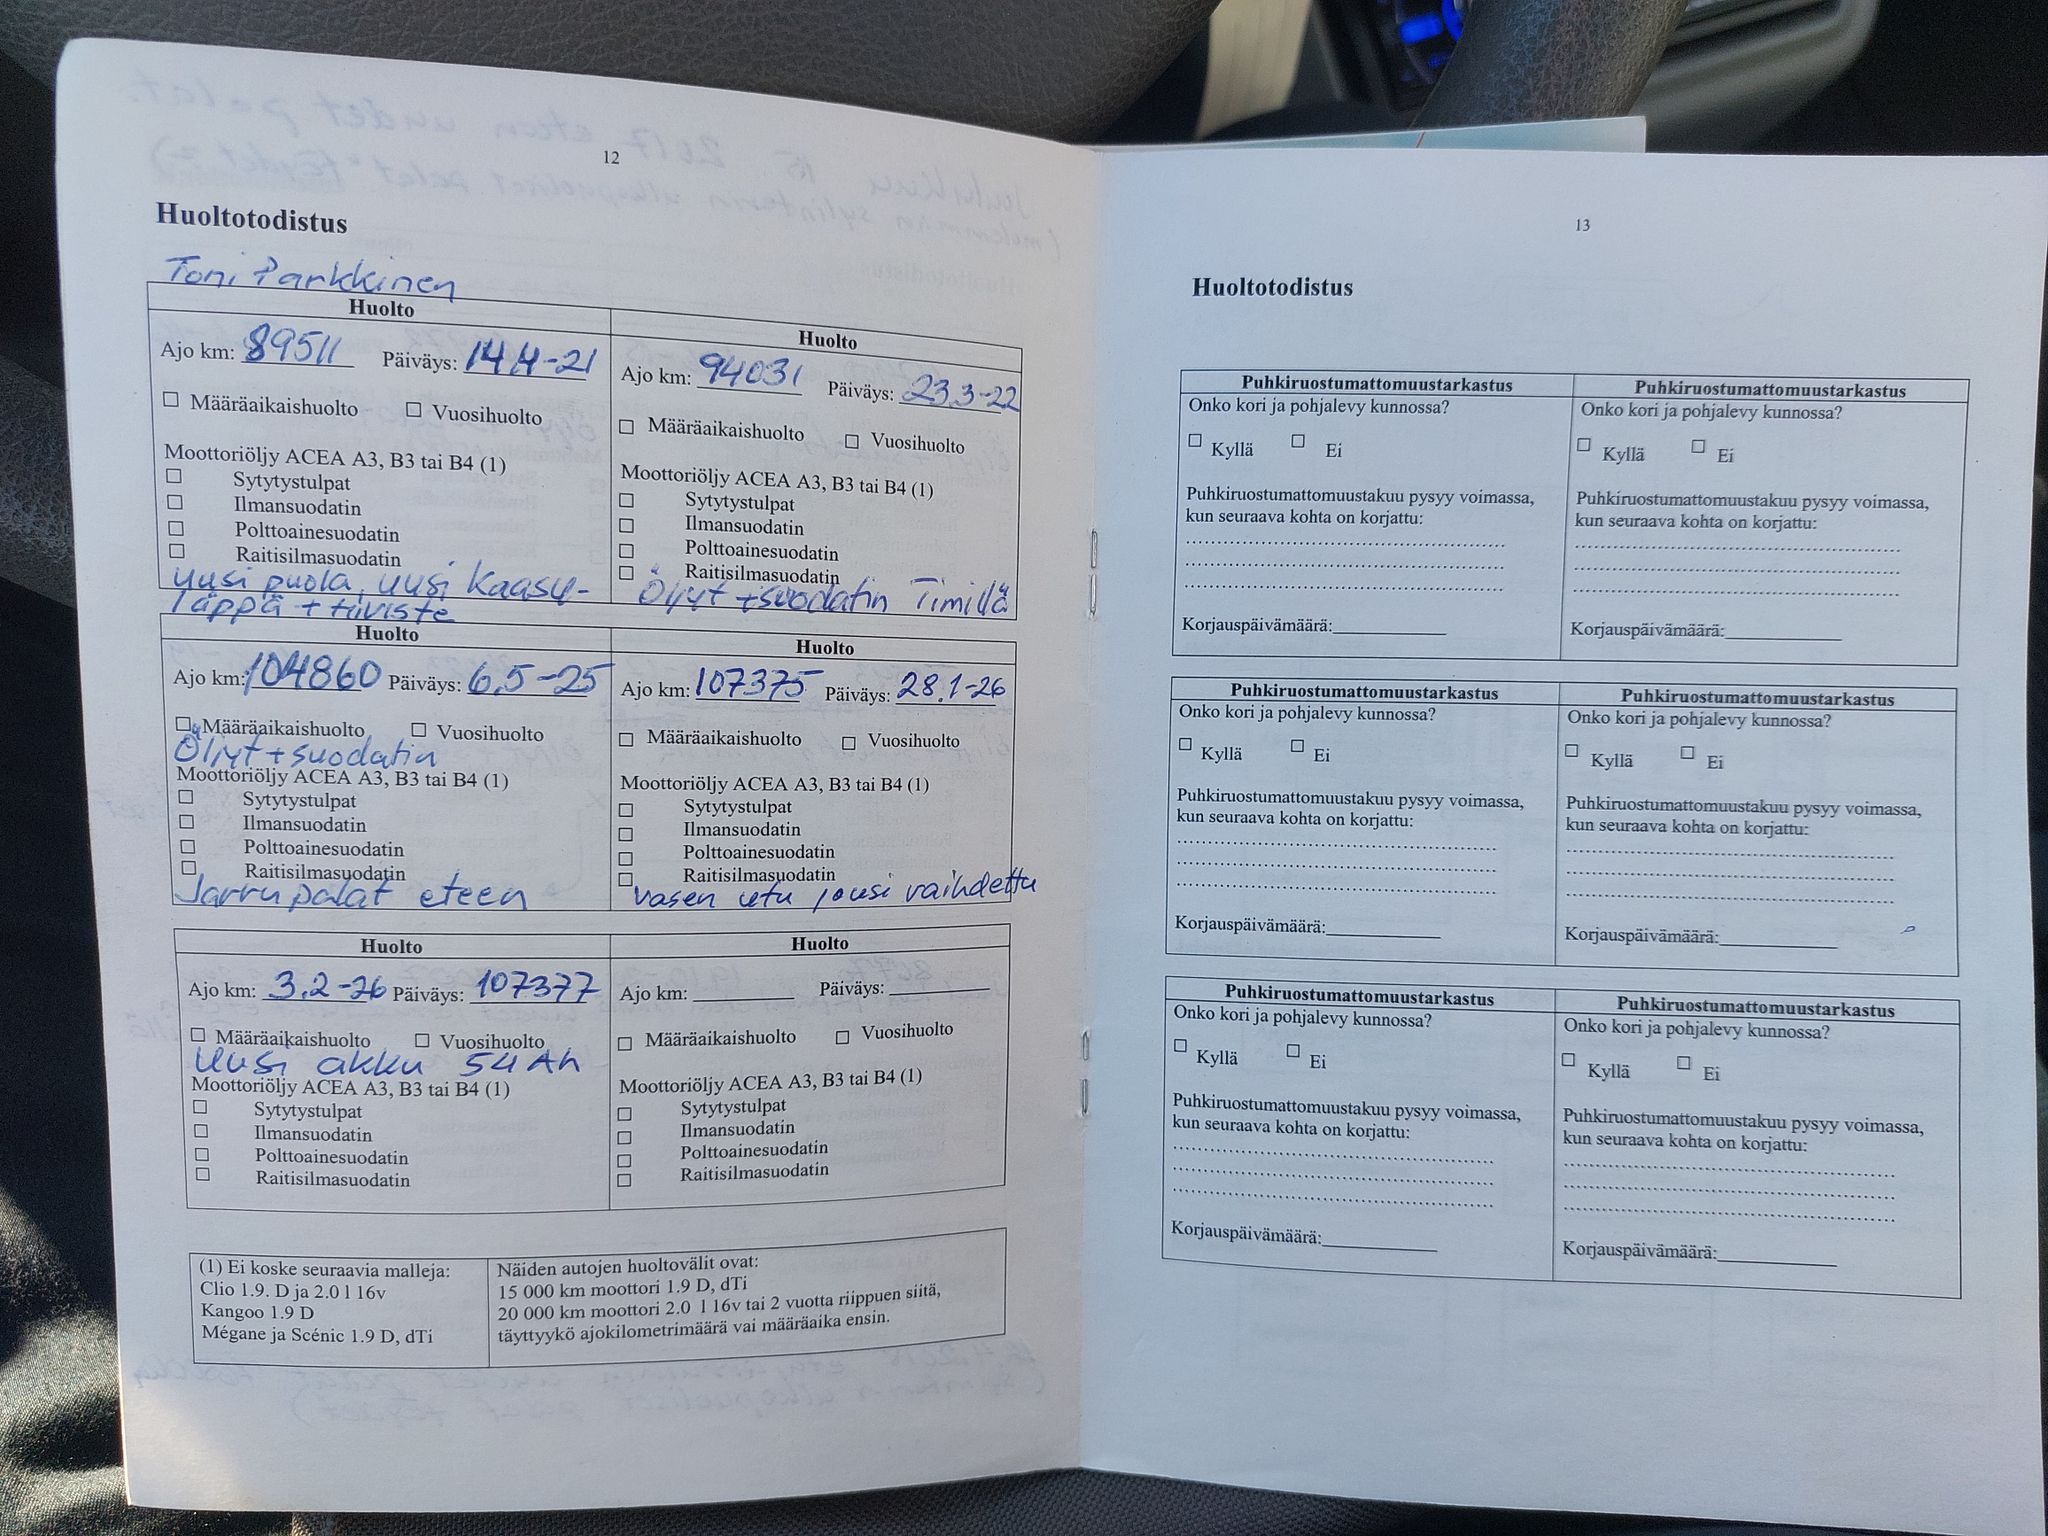 12
Huoltotodistus
Toni Parkkinen
Huolto
Ajo km: 89511 Päiväys: 14.4-21
Määräaikaishuolto Vuosihuolto
Moottoriöljy ACEA A3, B3 tai B4 (1)
Sytytystulpat
Ilmansuodatin
Polttoainesuodatin
Raitisilmasuodatin
uusi puola, uusi kaasu-
läppä + tiiviste
Huolto
Ajo km: 94031 Päiväys: 23.3-22
Määräaikaishuolto Vuosihuolto
Moottoriöljy ACEA A3, B3 tai B4 (1)
Sytytystulpat
Ilmansuodatin
Polttoainesuodatin
Raitisilmasuodatin
Öljyt + suodatin Timillä
Huolto
Ajo km: 104860 Päiväys: 6.5-25
Määräaikaishuolto Vuosihuolto
Öljyt + suodatin
Moottoriöljy ACEA A3, B3 tai B4 (1)
Sytytystulpat
Ilmansuodatin
Polttoainesuodatin
Raitisilmasuodatin
Jarrupalat eteen
Huolto
Ajo km: 107375 Päiväys: 28.1-26
Määräaikaishuolto Vuosihuolto
Moottoriöljy ACEA A3, B3 tai B4 (1)
Sytytystulpat
Ilmansuodatin
Polttoainesuodatin
Raitisilmasuodatin
vasen etu jousi vaihdettu
Huolto
Ajo km: 3.2-26 Päiväys: 107377
Määräaikaishuolto Vuosihuolto
Uusi akku 54 Ah
Moottoriöljy ACEA A3, B3 tai B4 (1)
Sytytystulpat
Ilmansuodatin
Polttoainesuodatin
Raitisilmasuodatin
Huolto
Ajo km: Päiväys:
Määräaikaishuolto Vuosihuolto
Moottoriöljy ACEA A3, B3 tai B4 (1)
Sytytystulpat
Ilmansuodatin
Polttoainesuodatin
Raitisilmasuodatin
(1) Ei koske seuraavia malleja:
Clio 1.9. D ja 2.0 l 16v
Kangoo 1.9 D
Mégane ja Scénic 1.9 D, dTi
Näiden autojen huoltovälit ovat:
15 000 km moottori 1.9 D, dTi
20 000 km moottori 2.0 l 16v tai 2 vuotta riippuen siitä,
täyttyykö ajokilometrimäärä vai määräaika ensin.
13
Huoltotodistus
Puhkiruostumattomuustarkastus
Onko kori ja pohjalevy kunnossa?
Kyllä Ei
Puhkiruostumattomuustakuu pysyy voimassa,
kun seuraava kohta on korjattu:
Korjauspäivämäärä:
Puhkiruostumattomuustarkastus
Onko kori ja pohjalevy kunnossa?
Kyllä Ei
Puhkiruostumattomuustakuu pysyy voimassa,
kun seuraava kohta on korjattu:
Korjauspäivämäärä:
Puhkiruostumattomuustarkastus
Onko kori ja pohjalevy kunnossa?
Kyllä Ei
Puhkiruostumattomuustakuu pysyy voimassa,
kun seuraava kohta on korjattu:
Korjauspäivämäärä:
Puhkiruostumattomuustarkastus
Onko kori ja pohjalevy kunnossa?
Kyllä Ei
Puhkiruostumattomuustakuu pysyy voimassa,
kun seuraava kohta on korjattu:
Korjauspäivämäärä:
Puhkiruostumattomuustarkastus
Onko kori ja pohjalevy kunnossa?
Kyllä Ei
Puhkiruostumattomuustakuu pysyy voimassa,
kun seuraava kohta on korjattu:
Korjauspäivämäärä:
Puhkiruostumattomuustarkastus
Onko kori ja pohjalevy kunnossa?
Kyllä Ei
Puhkiruostumattomuustakuu pysyy voimassa,
kun seuraava kohta on korjattu:
Korjauspäivämäärä: